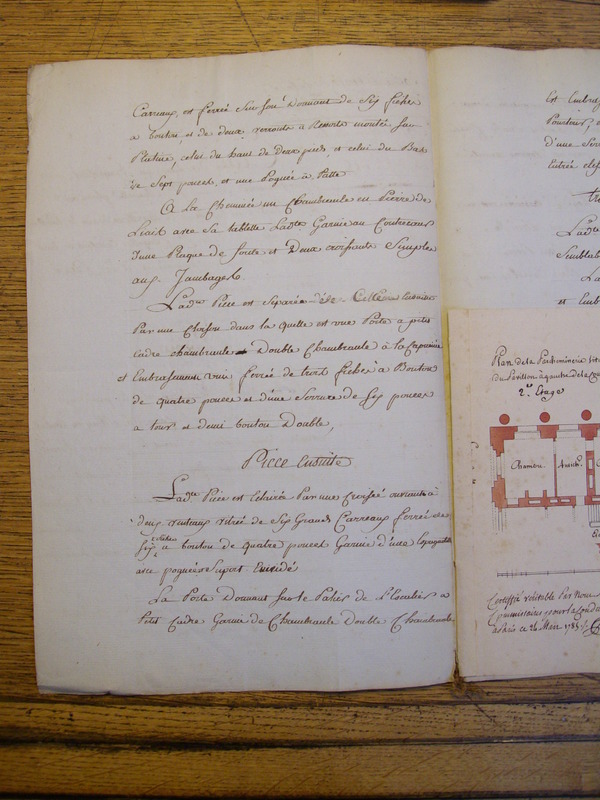 Carreaux, est ferrée Sur son Dormant de Six fiches
a bouton, et de deux verrouils a Ressorts montée sur
Platine, celui du haut de deux pieds, et celui du Bas
de Sept pouces, et une Poignée à Patte
A la Cheminée un Chambranle en Pierre de
Liais avec sa tablette Ladte Garnie au Contrecoeur
d'une Plaque de fonte et Deux croissants Simples
aux Jambages
Ladte Piece est Separée de
Par une Cloison dans la quelle est une Porte a petit
Cadre chambranle Double Chambranle à la Capucine
et Embrasement unie ferrée de trois fiches à Bouton
de quatre pouces et d'une Serrure de Six pouces
a tour et demi bouton Double,
Piece Ensuite
Ladte Piece est Eclairée Par une Croisée ouvrante à
deux vanteaux vitrée de Six Grands Carreaux ferrée de
Six fiches a bouton de quatre pouces Garnie d'une Espagnolette
avec poignée Suport Evuidé
La Porte Donnant sur le Palier de L'Escalier a
Petit Cadre Garnie de Chambranle Double Chambranle
Est Embra
Pourtour,
d'une Serr
Entrée
Ladte
Semblab
La
et Emb
Plan de la
du Pavillon à gauche de la
2e Etage
Chambre
Antich.
Certiffié véritable Par Nous
Commissaires pour la
ce 26 Mars 1785